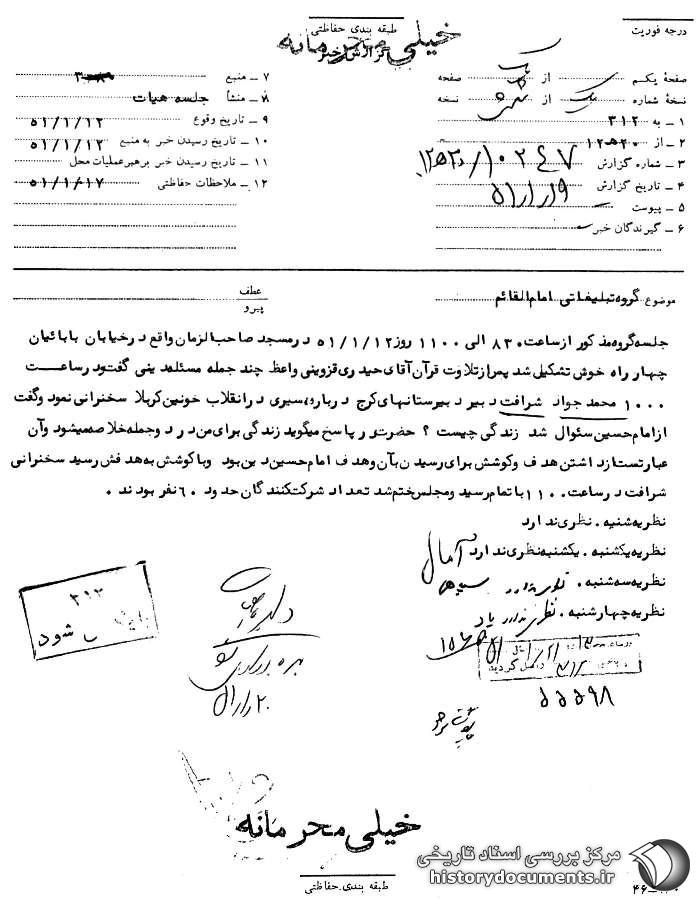 درجه فوریت
طبقه بندی حفاظتی
خیلی محرمانه
گزارش خبر
صفحهٔ یکم از یک صفحه
نسخهٔ شماره یک از نسخه
۱ – به ۳۱۲
۲ – از ۱۲ ه‍ ۲۰
۳ – شماره گزارش ۱۰۲۴۷
۴ – تاریخ گزارش ۵۱/۱/۱۹
۵ – پیوست
۶ – گیرندگان خبر
۷ – منبع
۸ – منشأ جلسه هیات
۹ – تاریخ وقوع ۵۱/۱/۱۲
۱۰ – تاریخ رسیدن خبر به منبع ۵۱/۱/۱۲
۱۱ – تاریخ رسیدن خبر برهبر عملیات محل
۱۲ – ملاحظات حفاظتی ۵۱/۱/۱۷
موضوع گروه تبلیغاتی امام القائم
عطف
پیرو
جلسه گروه مذکور از ساعت ۸۳۰ الی ۱۱۰۰ روز ۵۱/۱/۱۲ در مسجد صاحب الزمان واقع در خیابان بابائیان
چهار راه خوش تشکیل شد پس از تلاوت قرآن آقای حیدری قزوینی واعظ چند جمله مسئله دینی گفت و در ساعت
۱۰۰۰ محمد جواد شرافت دبیر دبیرستانهای کرج درباره سیری در انقلاب خونین کربلا سخنرانی نمود و گفت
از امام حسین سئوال شد زندگی چیست ؟ حضرت در پاسخ میگوید زندگی برای من در دو جمله خلاصه میشود و آن
عبارتست از داشتن هدف و کوشش برای رسیدن بآن و هدف امام حسین دین بود و با کوشش به هدفش رسید سخنرانی
شرافت در ساعت ۱۱۰۰ با تمام رسید و مجلس ختم شد تعداد شرکت کنندگان حدود ۶۰ نفر بودند .
نظریه شنبه . نظری ندارد
نظریه یکشنبه . یکشنبه نظری ندارد آمال
نظریه سه شنبه . نظری ندارد
نظریه چهارشنبه . نظری ندارد
۳۱۲
شود
بهره برداری شود
۳۱۲ داخل گردید
۵۵۵۹۸
خیلی محرمانه
طبقه بندی حفاظتی
مرکز بررسی اسناد تاریخی
historydocuments.ir